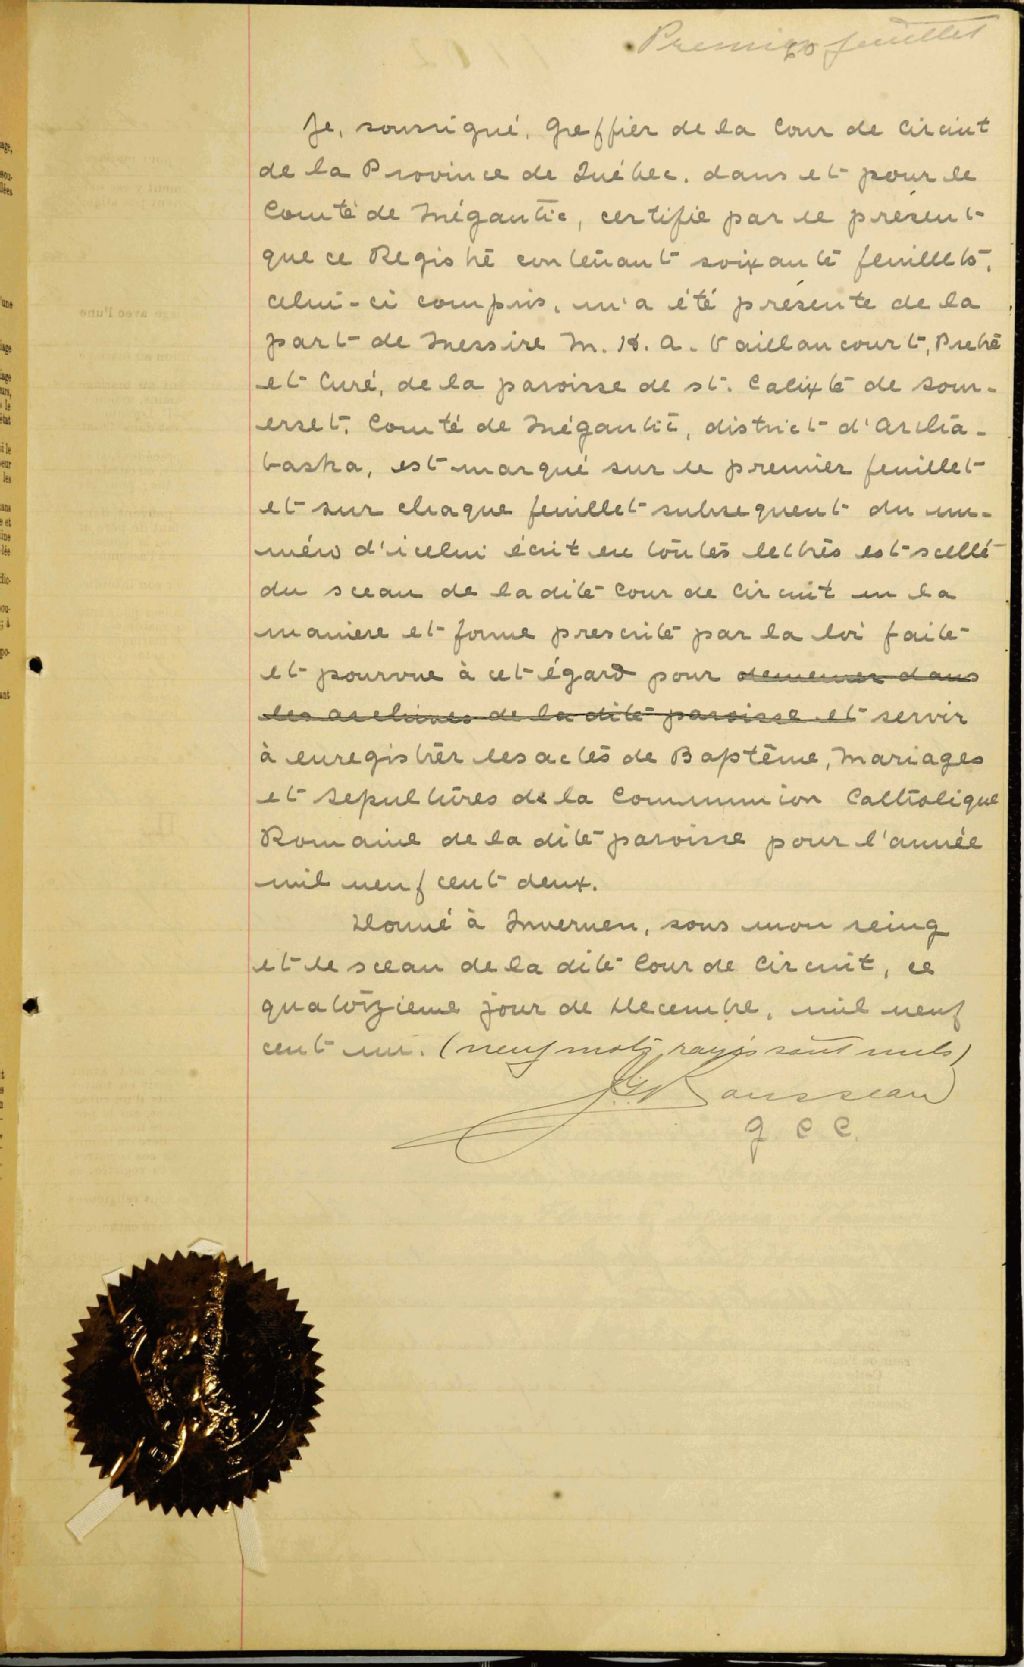 Premier feuillet
60
Je, soussigné, Greffier de la Cour de Circuit
de la Province de Québec, dans et pour le
Comté de Mégantic, certifie par le présent
que ce Registre contenant soixante feuillets,
celui-ci compris, m'a été présente de la
part de Messire M. H. A. Vaillancourt, Pretre
et Curé, de la paroisse de st. Calixte de Som-
erset, Comté de Mégantic, district d'Artha-
baska, est marqué sur le premier feuillet
et sur chaque feuillet subsequent du nu-
méro d'icelui écrit en toutes lettres est scellé
du sceau de la dite Cour de Circuit en la
maniere et forme prescrite par la loi faite
et pourvue à cet égard pour demeurer dans
les archives de la dite paroisse et servir
à enregistrer les actes de Baptême, Mariages
et Sepultures de la Communion Catholique
Romaine de la dite paroisse pour l'année
mil neuf cent deux.
Donné à Inverness, sous mon seing
et le sceau de la dite Cour de Circuit, ce
quatorzieme jour de Decembre, mil neuf
cent un. (neuf mots rayés sont nuls)
Rousseau
G C C.